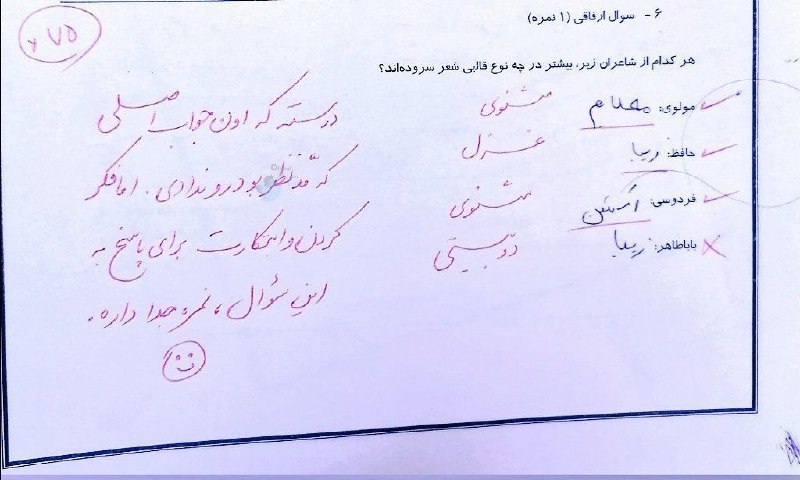 ۶ - سوال ارفاقی (۱ نمره)
هر کدام از شاعران زیر، بیشتر در چه نوع قالبی شعر سروده‌اند؟
مولوی: معلام مثنوی
حافظ: زیبا غزل
فردوسی: مثنوی
باباطاهر: زیبا دوبیتی
۰/۷۵
درسته که اون جواب اصلی
که مدّ نظر بود رو نداری. اما فکر
کردن و ابتکارت برای پاسخ به
این سؤال، نمره جدا داره.